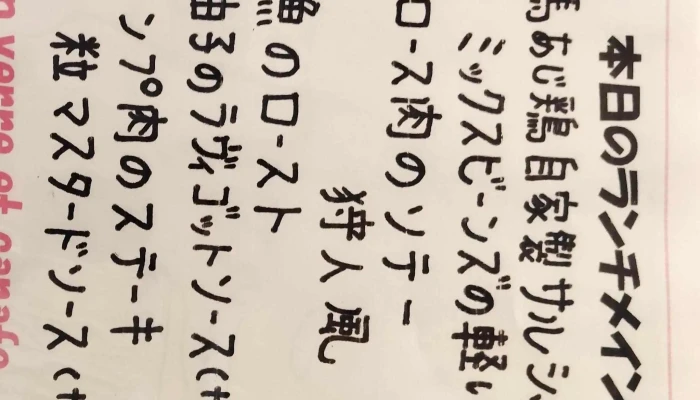 本日のランチメイン
あじ鶏自家製サルシ
ミックスビーンズの軽い
ロース肉のソテー
狩人風
のロースト
子のラヴィゴットソース
ンプ肉のステーキ
粒マスタードソース